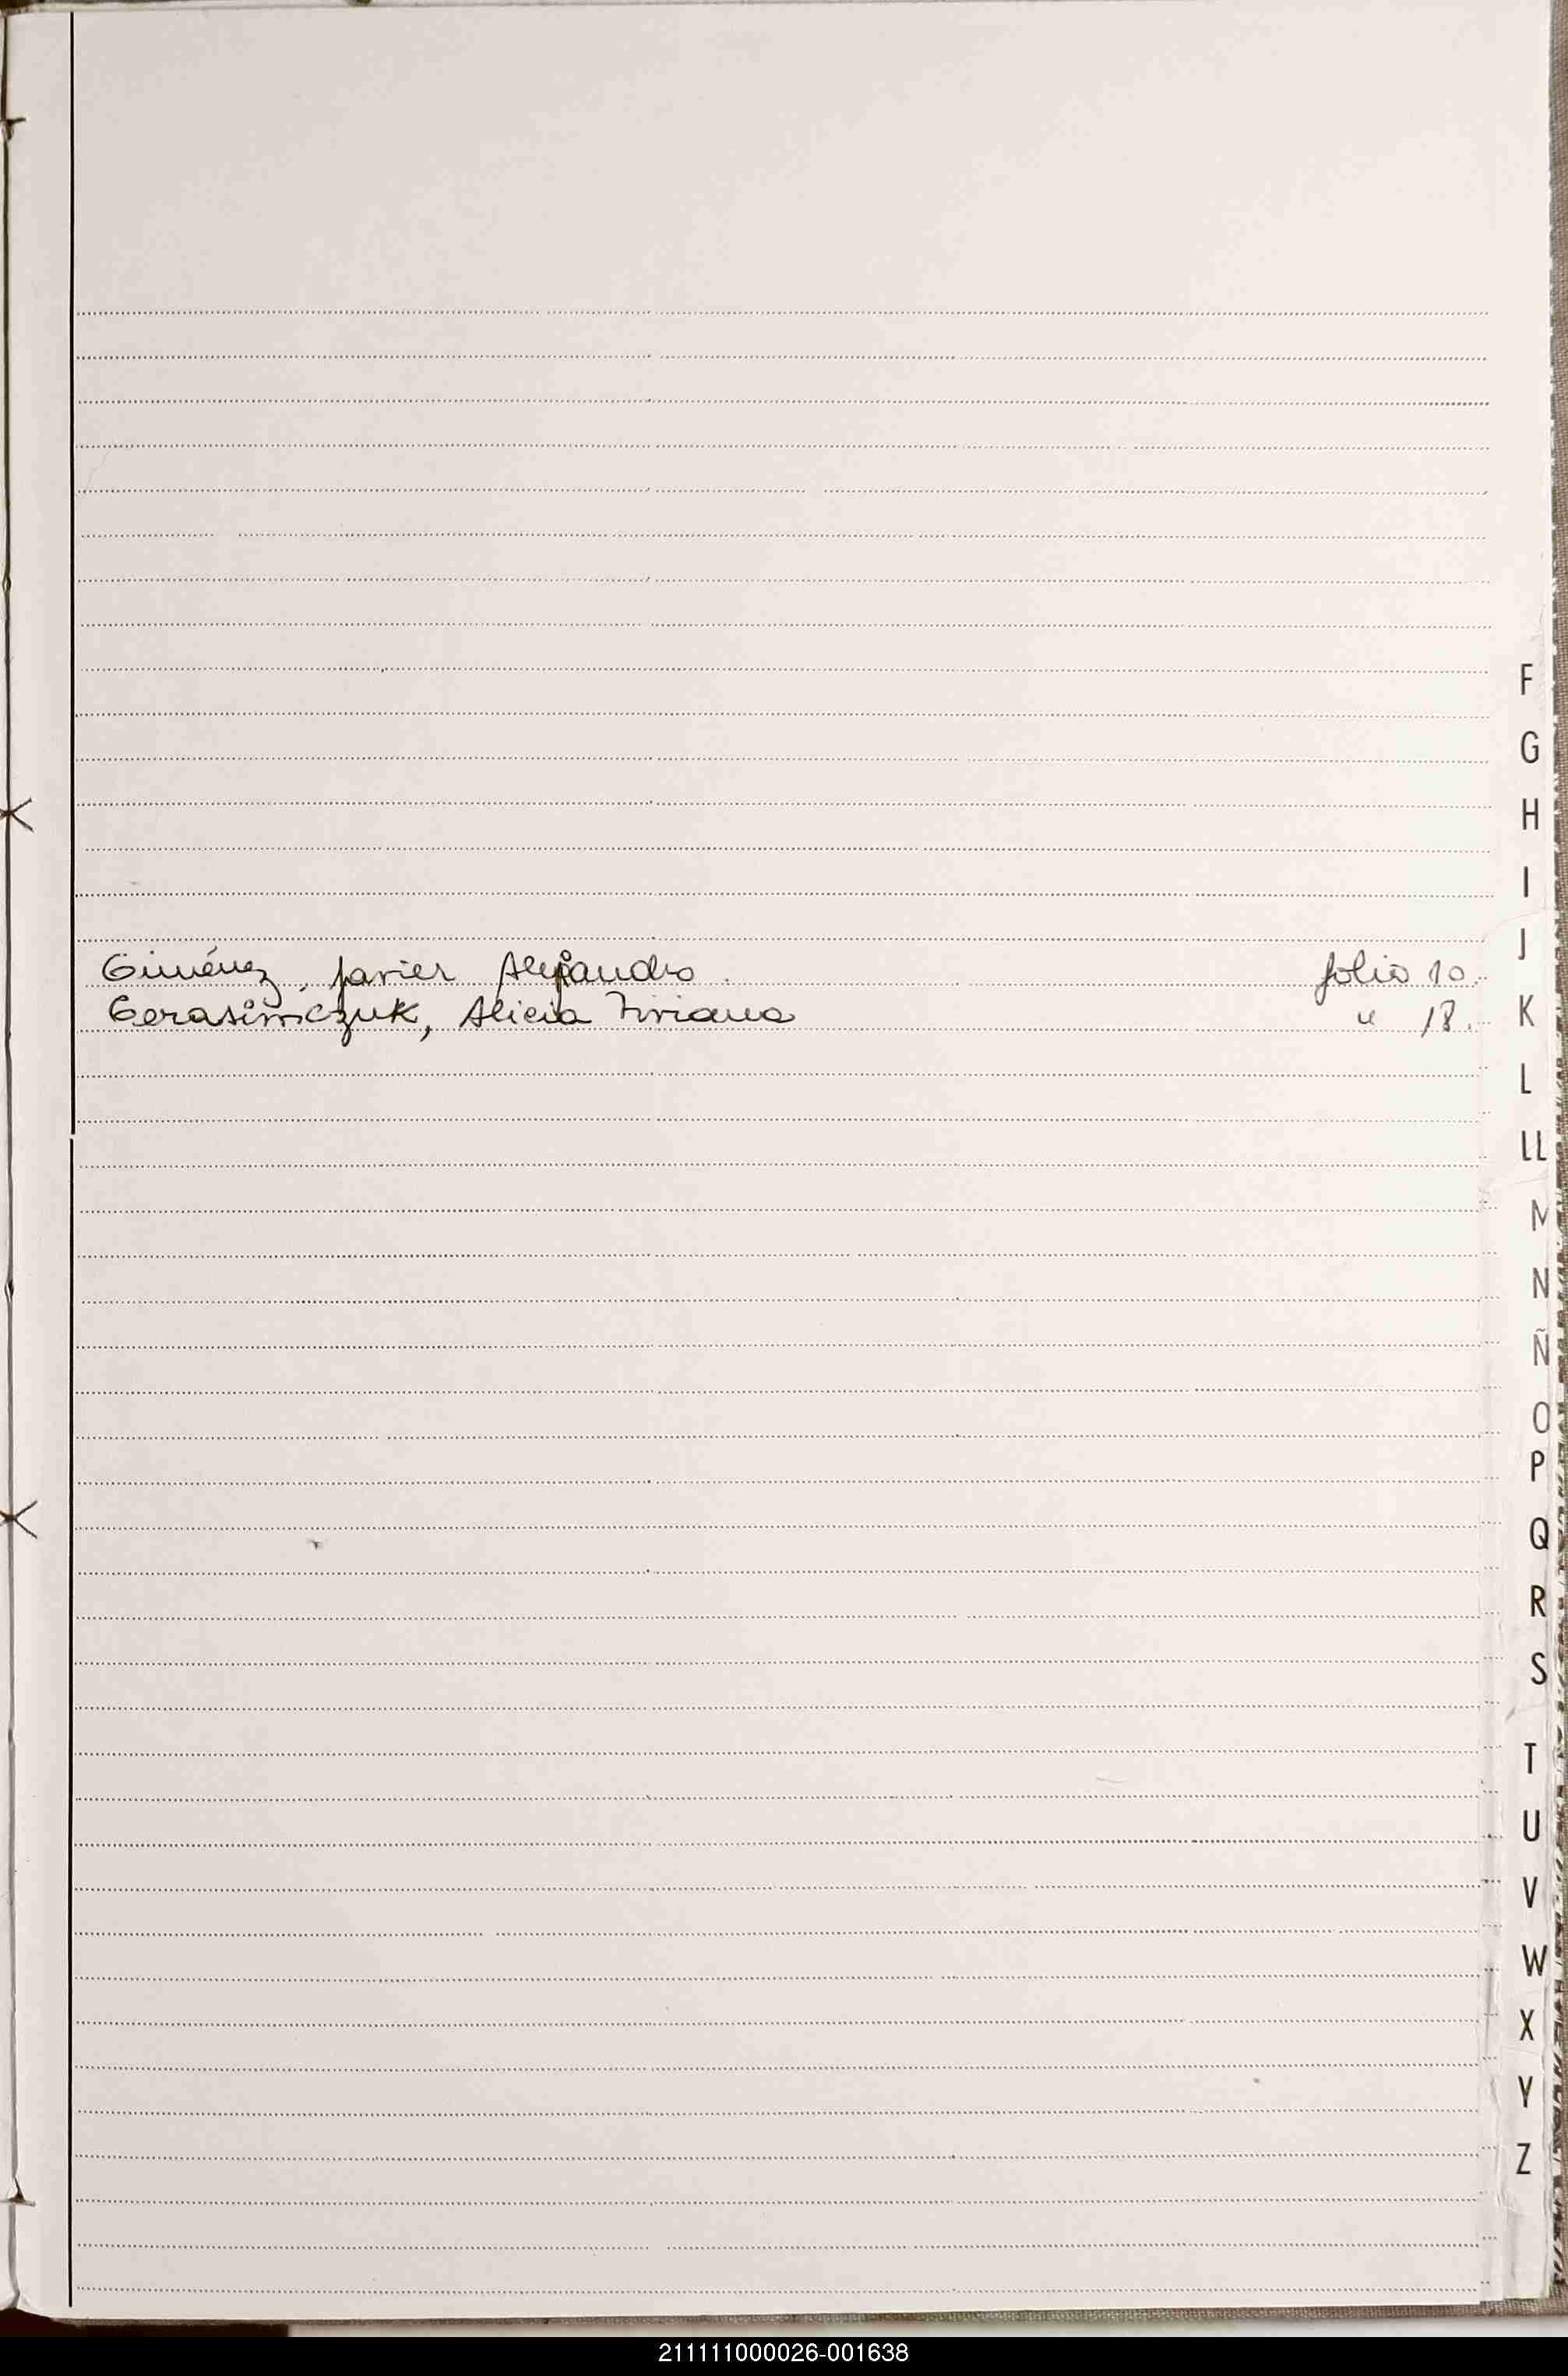 F
G
H
I
J
Giménez, Javier Alejandro. folio 10.
Gerasimczuk, Alicia Viviana " 18.
K
L
LL
M
N
Ñ
O
P
Q
R
S
T
U
V
W
X
Y
Z
211111000026-001638